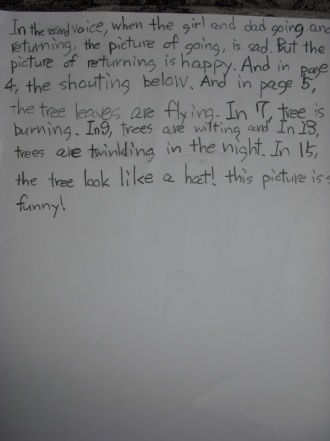 In the second voice, when the girl and dad going and
returning, the picture of going, is sad. But the
picture of returning is happy. And in page
4, the shouting below. And in page 5,
the tree leaves are flying. In 7, tree is
burning. In9, trees are wilting and In 13,
trees are twinkling in the night. In 15,
the tree look like a hat! this picture is s
funny!